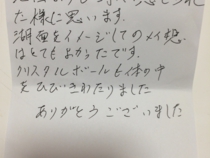 た様に思います。
湖面をイメージしてのメイ想
はとてもよかったです。
クリスタルボールも体の中
をひびきわたりました
ありがとうございました